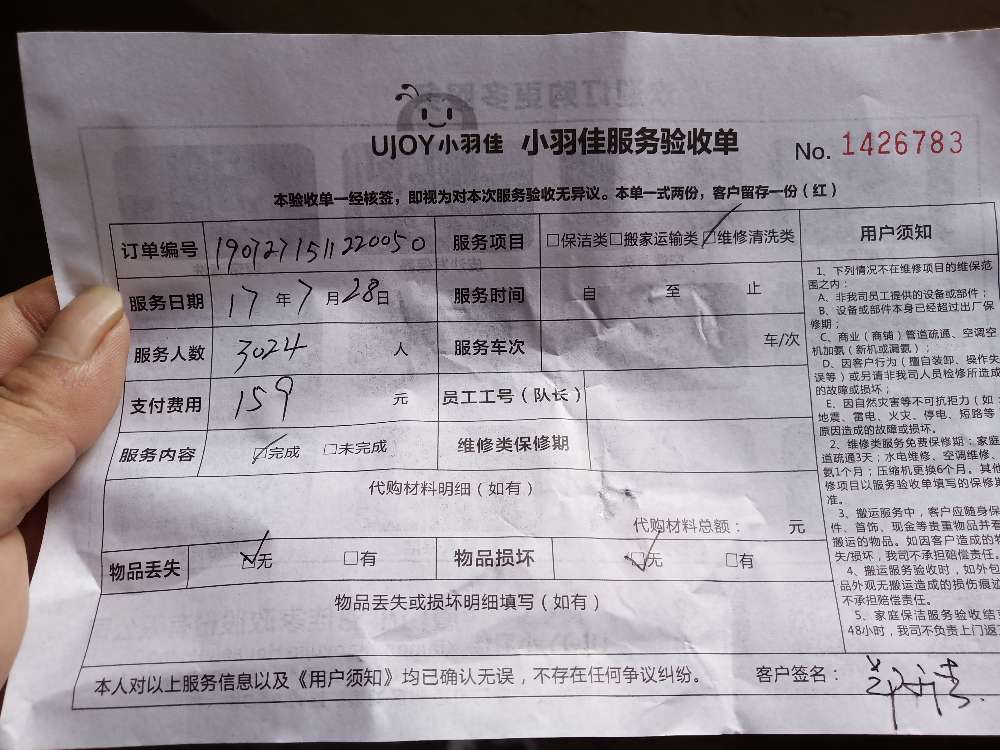 UJOY小羽佳 小羽佳服务验收单 No. 1426783
本验收单一经核签，即视为对本次服务验收无异议。本单一式两份，客户留存一份（红）
订单编号 1907271511220050 服务项目 □保洁类□搬家运输类☑维修清洗类
服务日期 17年7月28日 服务时间 自 至 止
服务人数 3024 人 服务车次 车/次
支付费用 159 元 员工工号（队长）
服务内容 ☑完成 □未完成 维修类保修期
代购材料明细（如有）
代购材料总额： 元
物品丢失 ☑无 □有 物品损坏 ☑无 □有
物品丢失或损坏明细填写（如有）
本人对以上服务信息以及《用户须知》均已确认无误，不存在任何争议纠纷。 客户签名：
用户须知
1、下列情况不在维修项目的维保范
围之内：
A、非我司员工提供的设备或部件；
B、设备或部件本身已经超过出厂保
修期；
C、商业（商铺）管道疏通、空调空
机加氨（新机或漏氨）；
D、因客户行为（擅自装卸、操作失
误等）或另请非我司人员检修所造成
的故障或损坏；
E、因自然灾害等不可抗拒力（如：
地震、雷电、火灾、停电、短路等
原因造成的故障或损坏。
2、维修类服务免费保修期：家庭
道疏通3天；水电维修、空调维修、
氨1个月；压缩机更换6个月。其他
修项目以服务验收单填写的保修期
准。
3、搬运服务中，客户应随身保
件、首饰、现金等贵重物品并看
搬运的物品。如因客户造成的物
失/损坏，我司不承担赔偿责任。
4、搬运服务验收时，如外包
品外观无搬运造成的损伤痕迹
不承担赔偿责任。
5、家庭保洁服务验收结束
48小时，我司不负责上门返